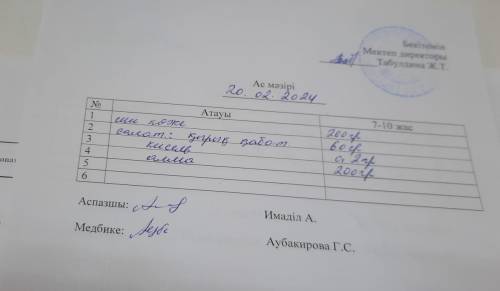 Бекітемін
Мектеп директоры
Табулдина Ж.Т.
Ас мәзірі
20. 02. 2024
№ Атауы 7-10 жас
1 ши көже 200гр
2 салат: қырық қабат 60гр
3 кисель 0,2гр
4 алма 200гр
5
6
Аспазшы: Имаділ А.
Медбике: Аубакирова Г.С.